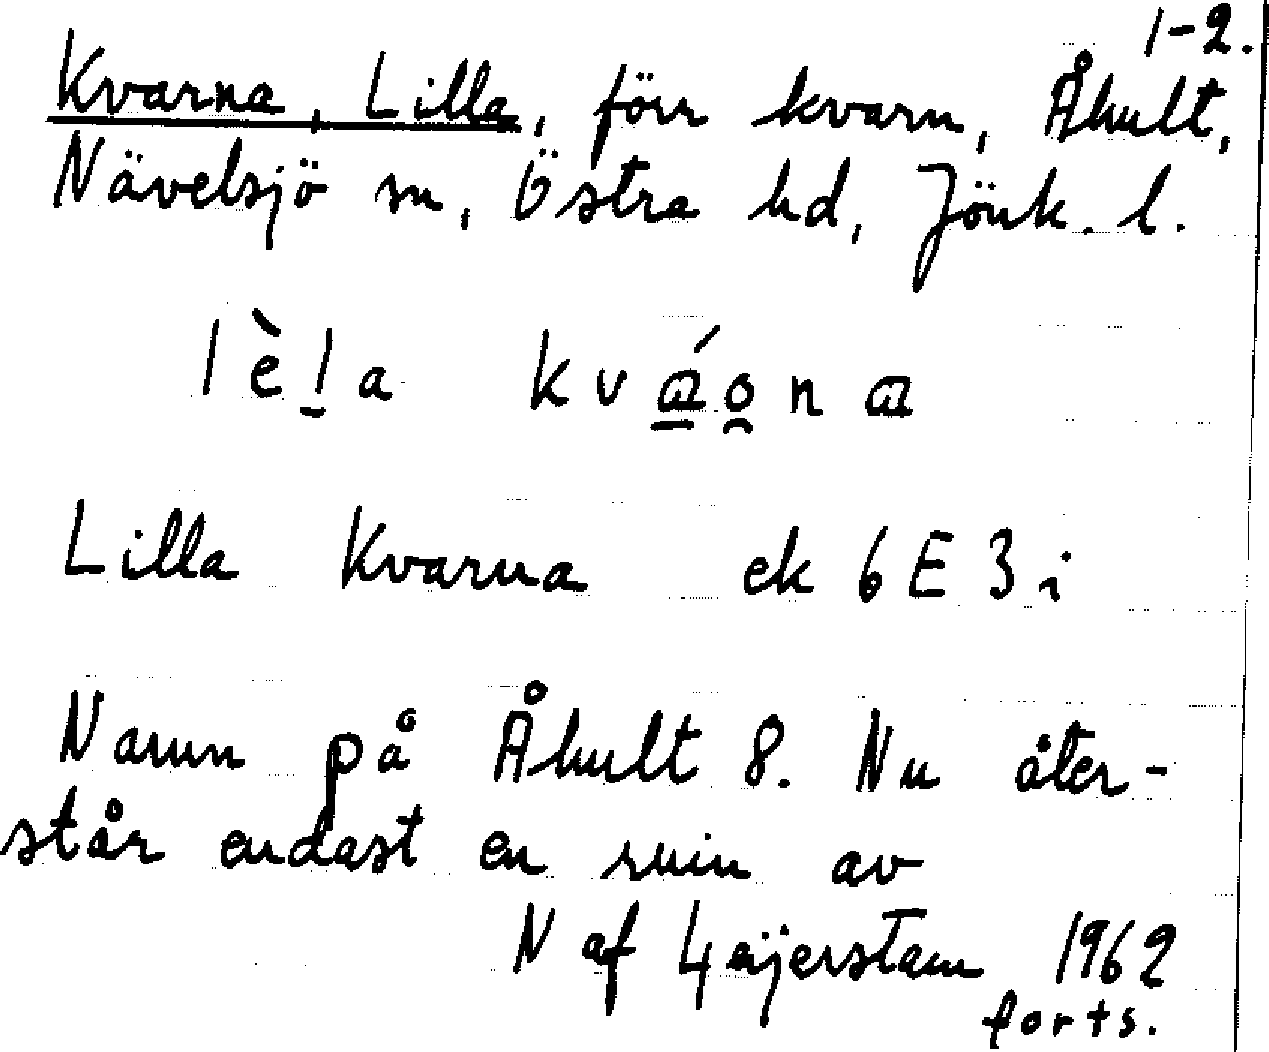 1-2.
Kvarna, Lilla, förr kvarn, Åhult,
Nävelsjö sn, Östra hd, Jönk. l.
lèl̠a kvá̱o̯na
Lilla Kvarna ek 6E3i
Namn på Åhult 8. Nu åter-
står endast en ruin av
N af Geijerstam 1962
forts.